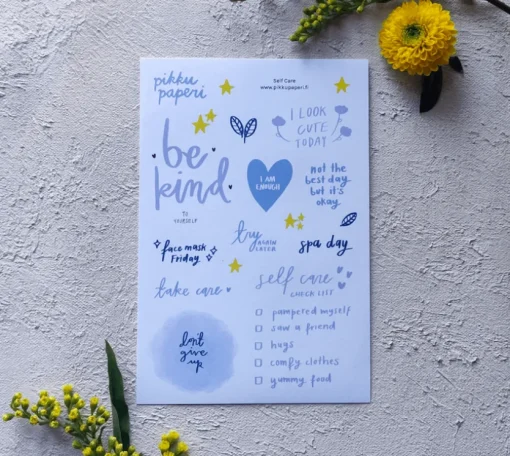 pikku
paperi
Self Care
www.pikkupaperi.fi
I LOOK
CUTE
TODAY
be
kind
TO
YOURSELF
I AM
ENOUGH
not the
best day
but it's
okay
try
AGAIN
LATER
face mask
Friday
spa day
take care
self care
CHECK LIST
pampered myself
saw a friend
hugs
comfy clothes
yummy food
don't
give
up